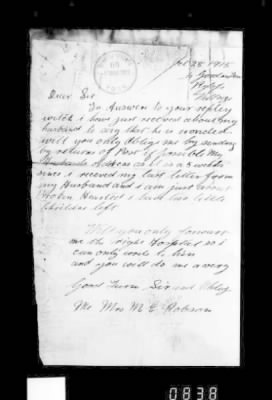 Oct 28 1915
Dear Sir
In Answer to your reply
witch i have just received about my
husband to say that he is wounded
will you only oblige me by sending
by return of Post if possible my
Husbands Address as it is 3 weeks
since i received my last letter from
my Husband and i am just about
Broken Hearted i have two little
children left
Will you only
me the right so i
can only write to him
and you will do me a very
Good Turn Sir and Oblige
Me Mrs M E Robson
0838